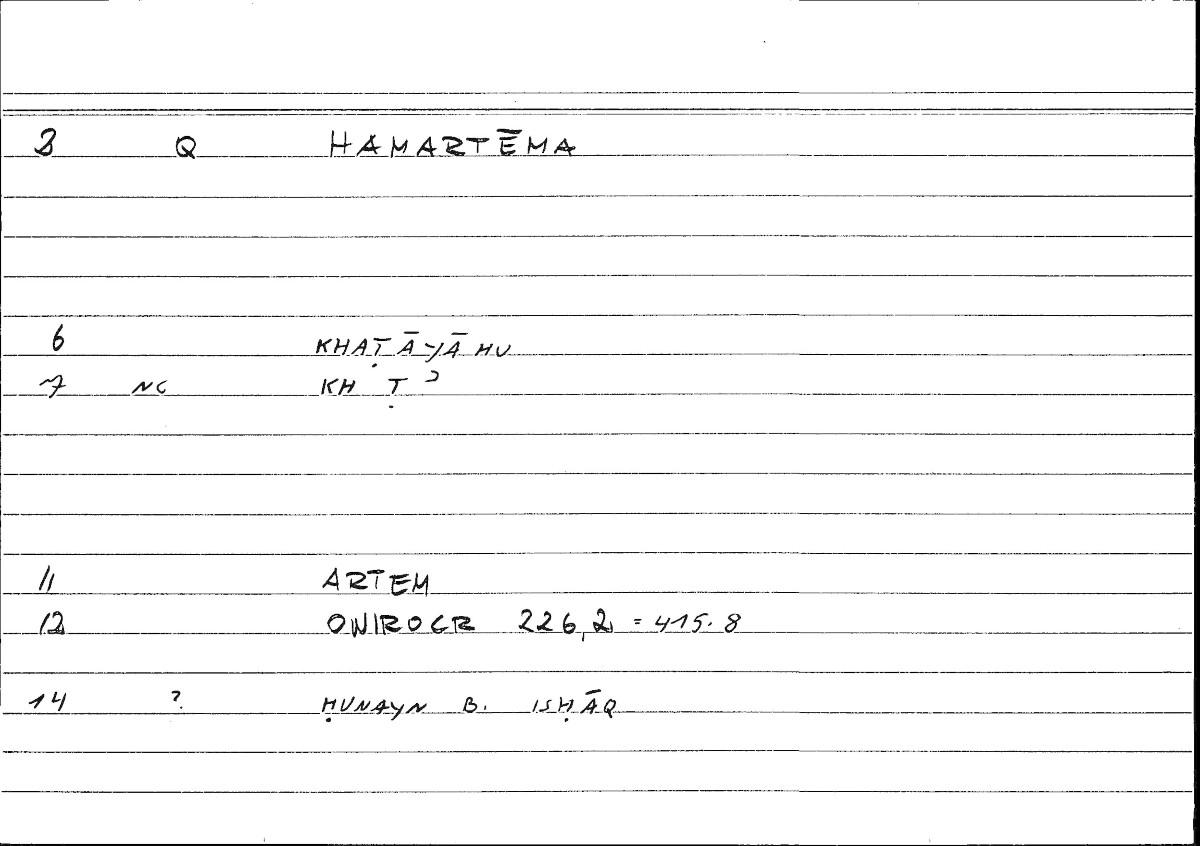 3 Q HAMARTĒMA
6 KHAṬĀYĀHU
7 NC KH Ṭ ʾ
11 ARTEM
12 ONIROCR 226,2 = 415.8
14 ? ḤUNAYN B. ISḤĀQ